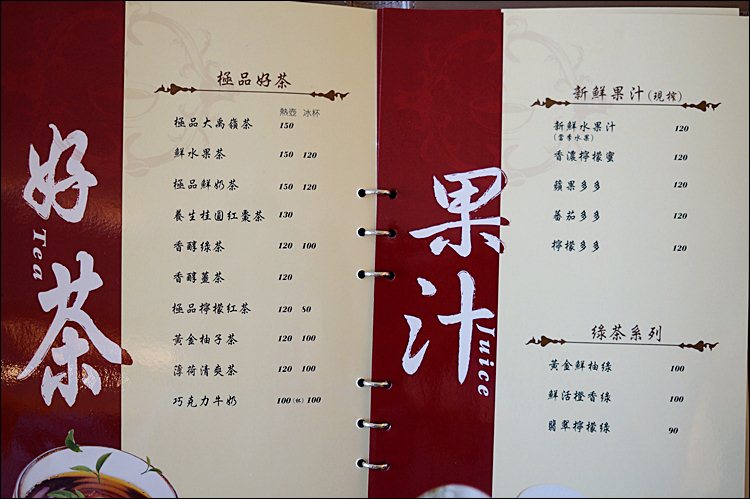 好茶
Tea
極品好茶
熱壺 冰杯
極品大禹嶺茶 150
鮮水果茶 150 120
極品鮮奶茶 150 120
養生桂圓紅棗茶 130
香醇綠茶 120 100
香醇薑茶 120
極品檸檬紅茶 120 80
黃金柚子茶 120 100
薄荷清爽茶 120 100
巧克力牛奶 100(杯) 100
果汁
Juice
新鮮果汁(現榨)
新鮮水果汁 120
(當季水果)
香濃檸檬蜜 120
蘋果多多 120
蕃茄多多 120
檸檬多多 120
綠茶系列
黃金鮮柚綠 100
鮮活橙香綠 100
翡翠檸檬綠 90